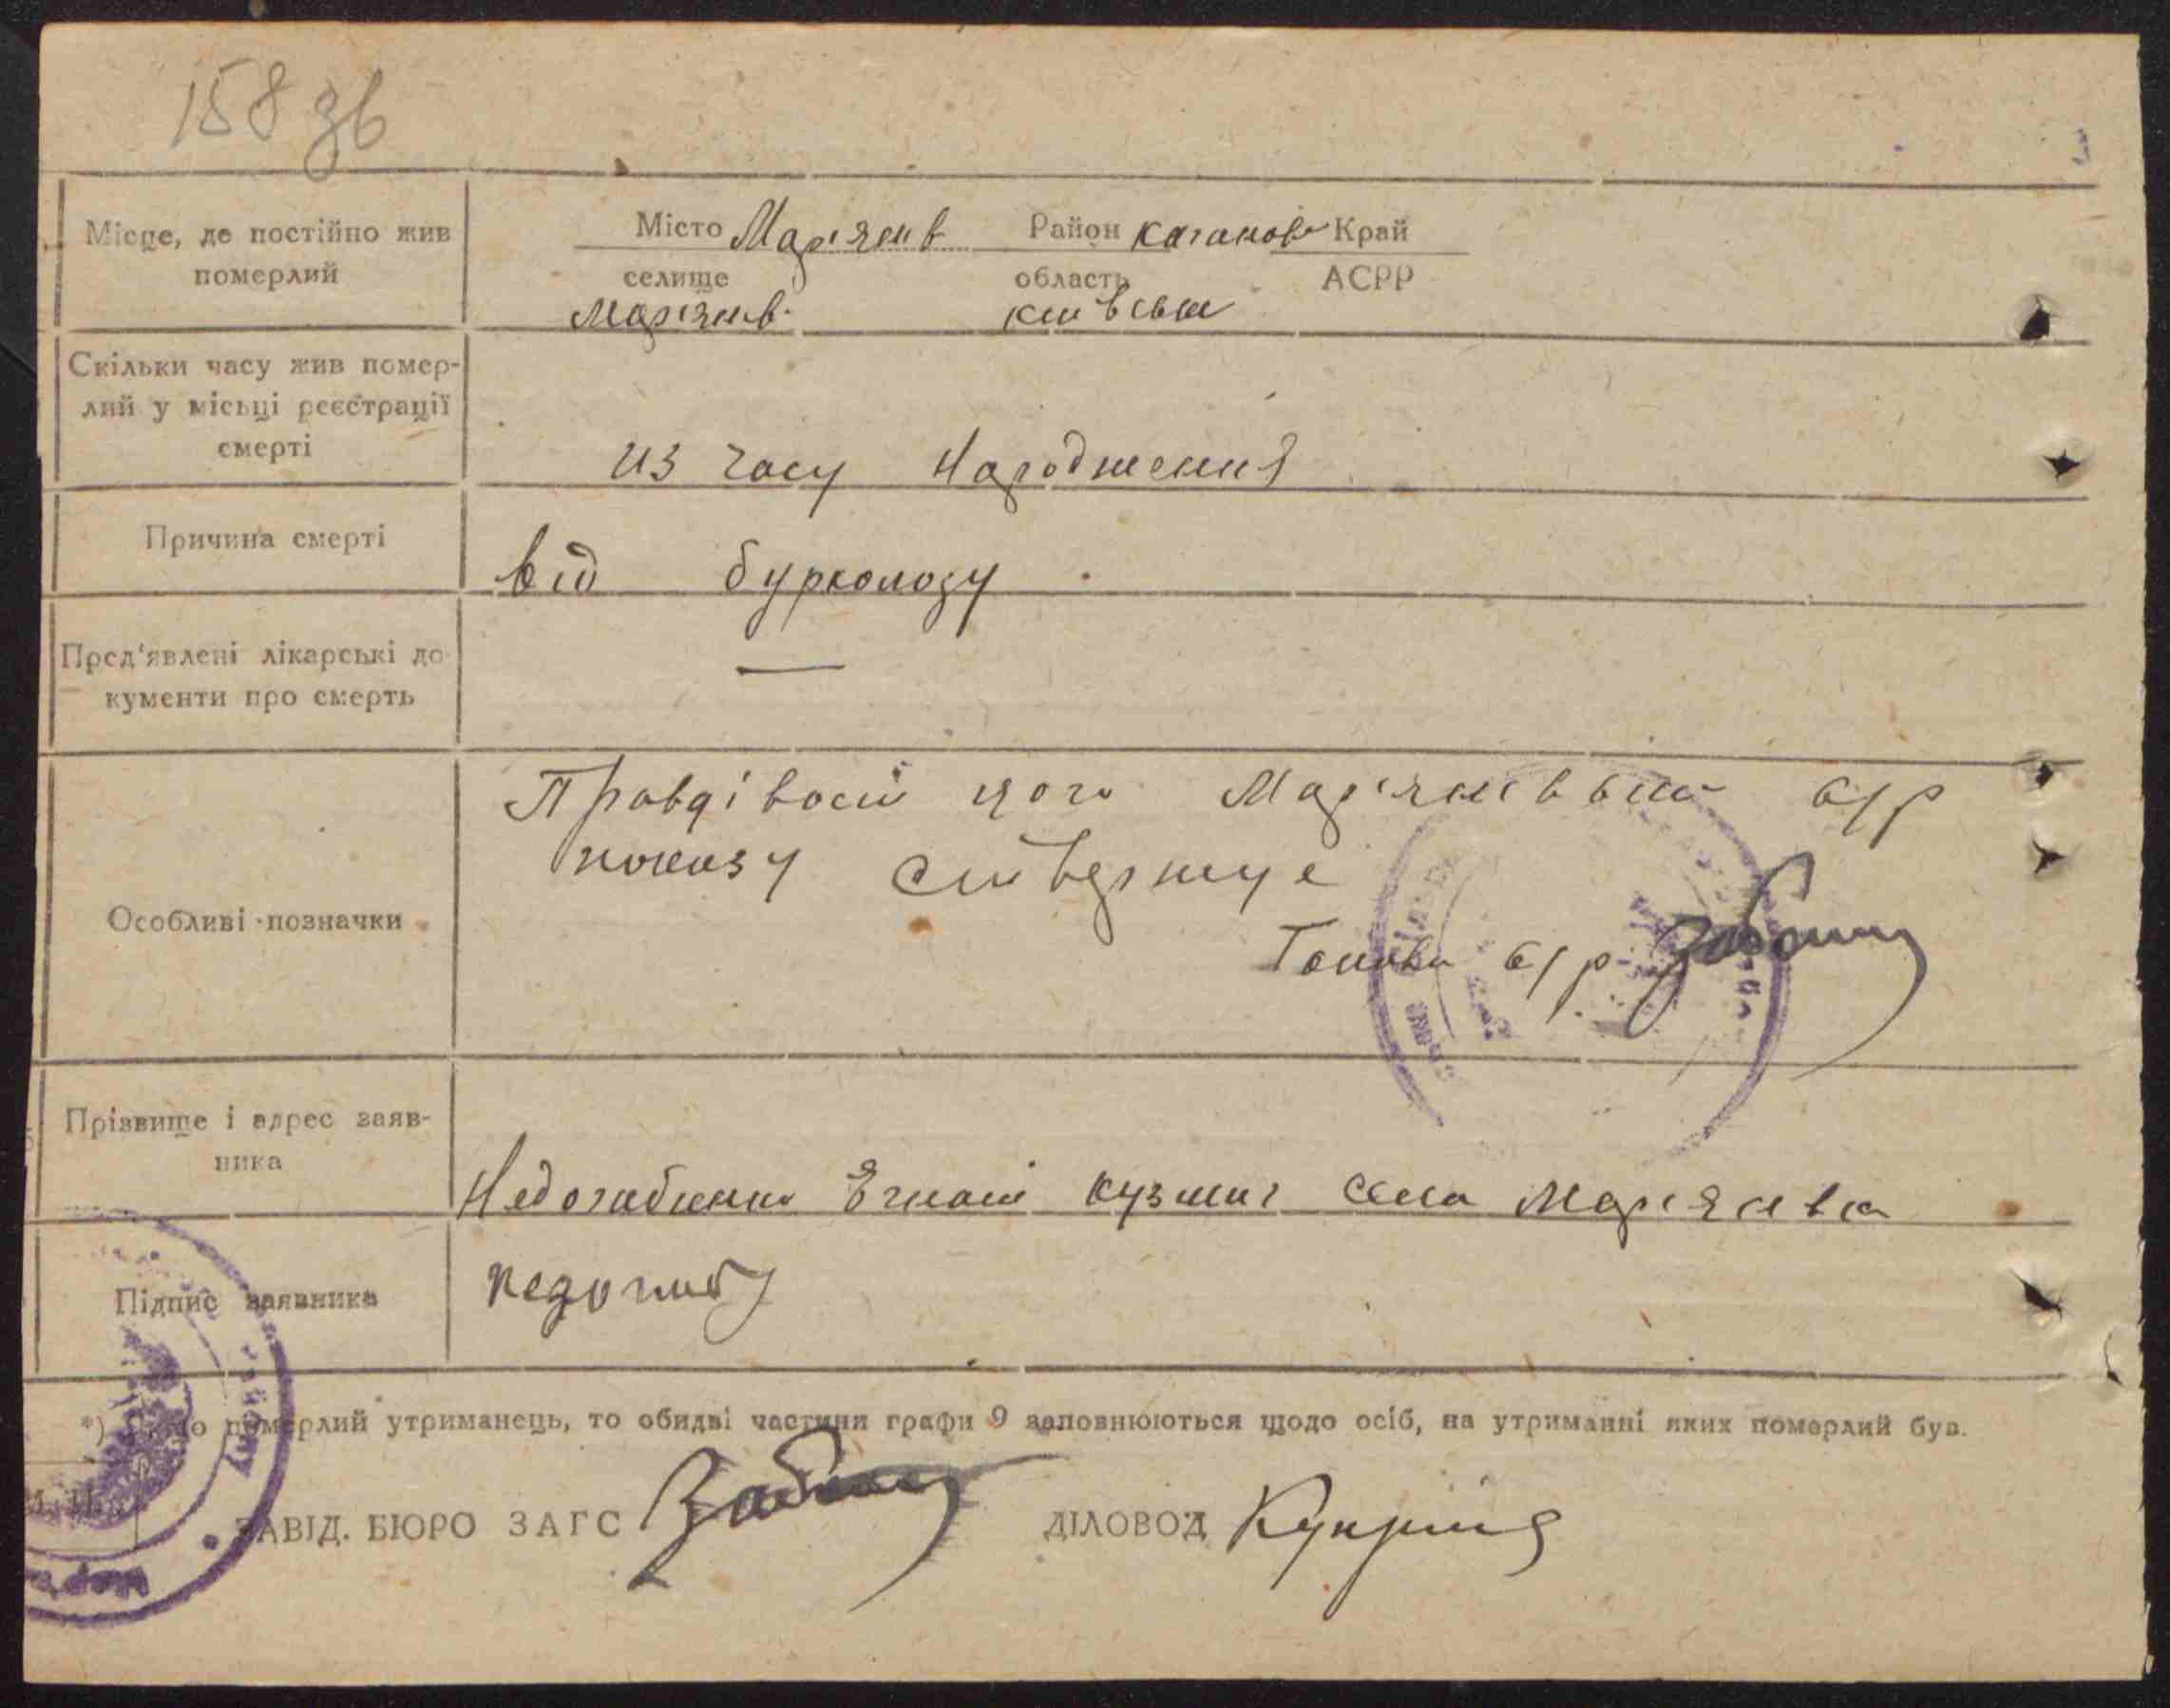 158 зв
Місце, де постійно жив
померлий
Місто Мар'янів Район Каганов Край
селище область АСРР
Мар'янів. київськ
Скільки часу жив помер-
лий у місьці реєстрації
смерті
из часу народження
Причина смерті
від буркольозу
Пред'явлені лікарські до-
кументи про смерть
—
Особливі позначки
Правдівость цого Мар'янівська с/р
показу ствержує
Голова с/р
Прізвище і адрес заяв-
ника
Кузмич села Мар'янівка
Підпис заявника
*) померлий утриманець, то обидві частини графи 9 заповнюються щодо осіб, на утриманні яких померлий був.
ЗАВІД. БЮРО ЗАГС
ДІЛОВОД